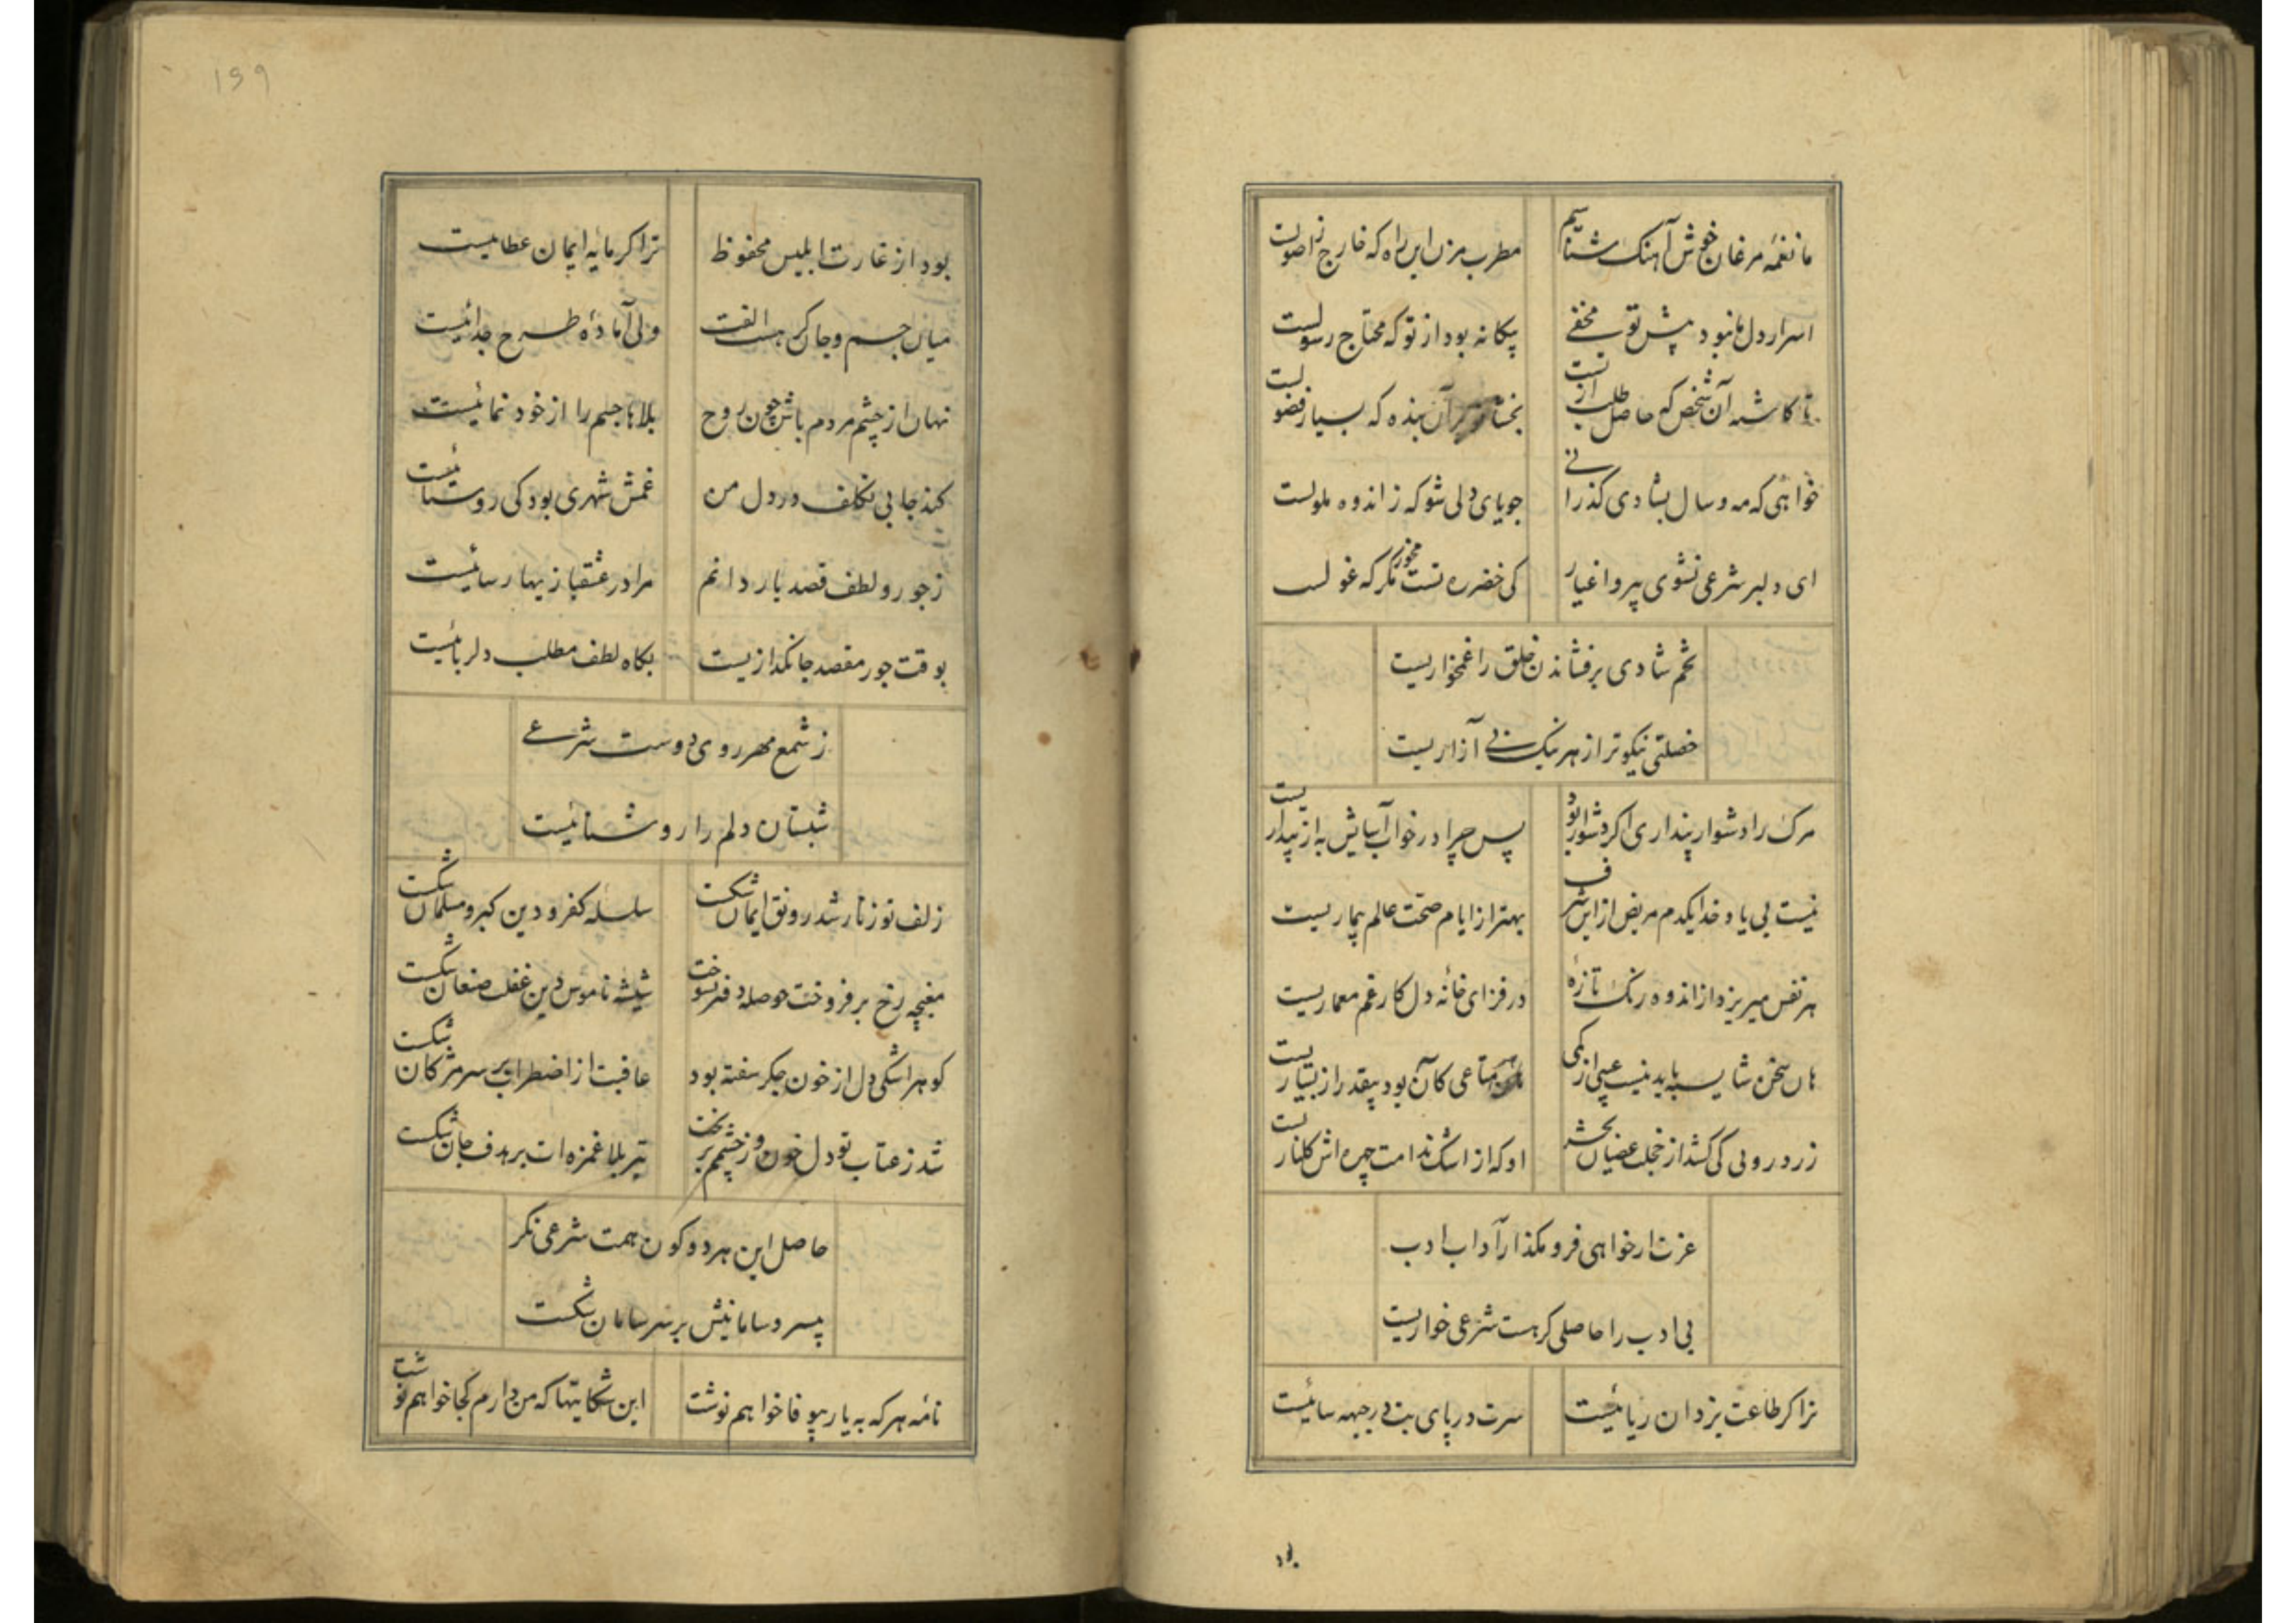 ما نغمه مرغان خوش آهنک شناسیم مطرب مزن این راه که خارج ز اصولست
اسرار دل ما نبود پیش تو مخفی پیکانه بود از تو که محتاج رسولست
تا کا شه آن شخص که حاصل طلب از تست بخشای بر آن بنده که بسیار فضولست
خواهی که مه و سال بشادی گذرانی جویای دلی شو که ز اندوه ملولست
ای دلبر شرعی نشوی پیرو اغیار کی خضر ره تست مخور مکر که غولست
تخم شادی برفشاندن خلق را غمخواریست
خصلتی نیکوتر از هر نیک بی آزاریست
مرک را دشوار پنداری اکر دشوار بود پس چرا در خواب آسایش به از بیداریست
نیست بی یاد خدا یکدم مریض از این شرف بهتر از ایام صحت عالم بیماریست
هر نفس میریزد از اندوه رنک تازهٔ در فزای خانه دل کار غم معماریست
هان سخن شایسته باید نیست عیبی از کمی هر متاعی کان بود بیقدر از بسیاریست
زرد رویی کی کشد از خجلت عصیان بحشر او که از اشک ندامت چهره اش کلناریست
عزت ار خواهی فرو مکذار آداب ادب
بی ادب را حاصلی کر هست شرعی خواریست
ترا کر طاعت یزدان ریائیست سرت در پای بت در جبهه سائیست
بود
159
بود از غارت ابلیس محفوظ ترا کر مایه ایمان عطائیست
میان جسم و جان کر هست الفت ولی آمادهٔ طرح جدائیست
نهان از چشم مردم باش چون روح بلاها جسم را از خود نمائیست
کند جا بی تکلف در دل من غمش شهری بود کی روستائیست
ز جور و لطف قصد یار دانم مرا در عشقبازیها رسائیست
بوقت جور مقصد جانکدازیست بکاه لطف مطلب دلربائیست
ز شمع مهر روی دوست شرعی
شبستان دلم را روشنائیست
زلف تو زنار شد رونق ایمان شکست سلسله کفر و دین کبر و مسلمان شکست
مغبچه رخ بر فروخت حوصله دفتر سوخت شیشه ناموس دین عقل صنعان شکست
کوهر اشکی دل از خون جکر سفته بود عاقبت از اضطراب بر سر مژکان شکست
شد ز عتاب تو دل خون و ز چشمم بریخت تیر بلا غمزه ات بر هدف جان شکست
حاصل این هر دو کون همت شرعی نکر
بیسر و سامانیش بر سر سامان شکست
نامه هر که به یار بیوفا خواهم نوشت این شکایتها که من دارم کجا خواهم نوشت